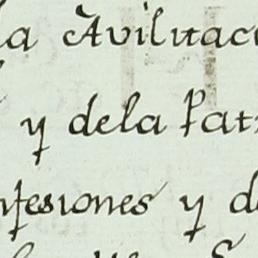 la Avilitac
y dela Pat
nfesiones y d